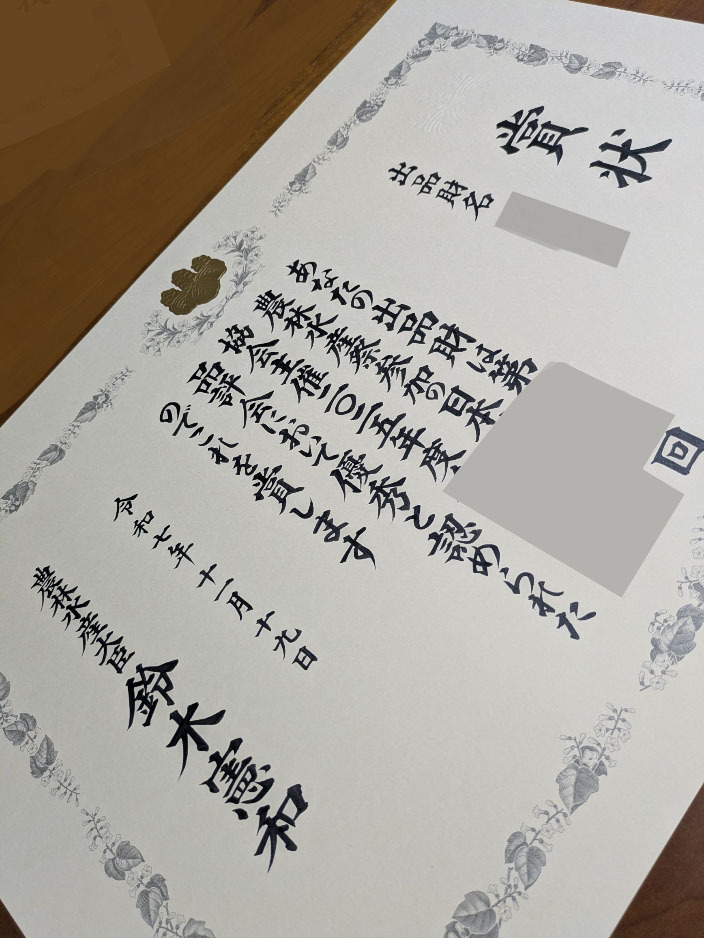 賞状
出品財名
あなたの出品財は第 回
農林水産祭参加の日本
協会主催二〇二五年度
品評会において優秀と認められた
のでこれを賞します
令和七年十一月十九日
農林水産大臣 鈴木憲和